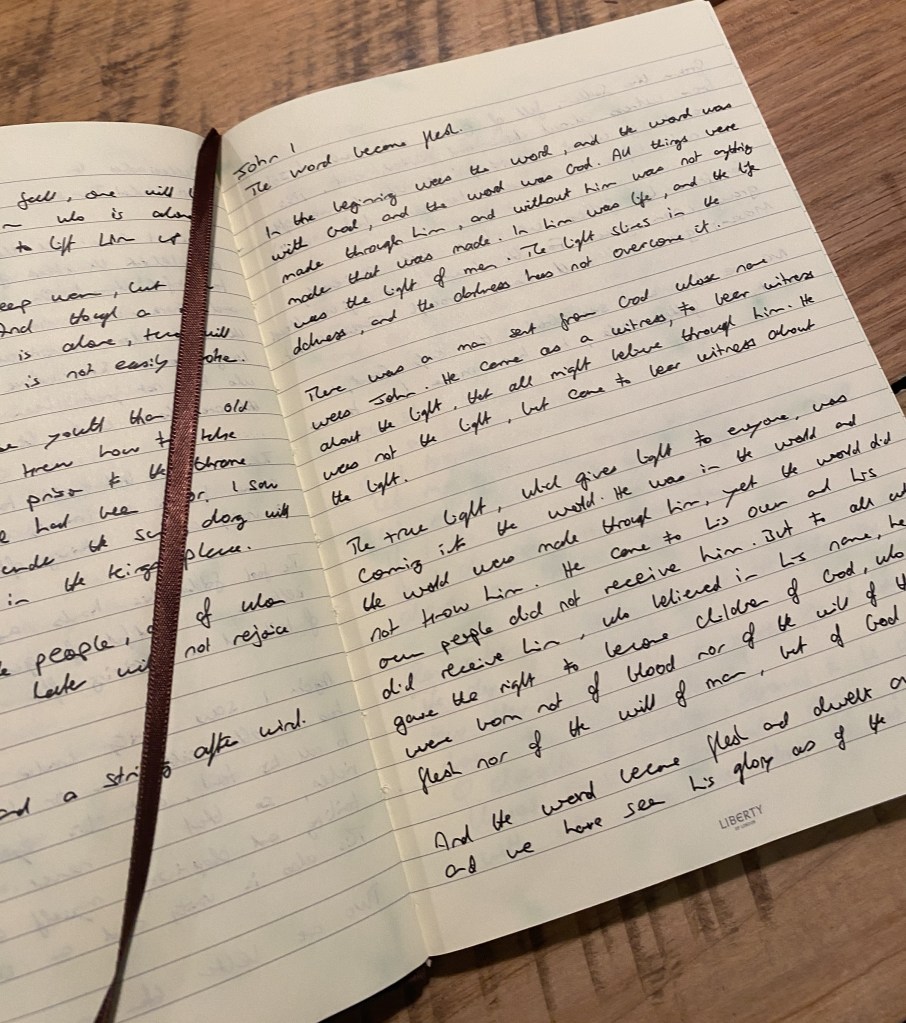 fall, one will
who is alone
to lift him up
keep warm, but
And though a
is alone, two will
is not easily broke.
youth than old
know how to take
prison to the throne
had been poor. I saw
under the sun along with
in the kings place.
people, of whom
later will not rejoice
and a striving after wind.
John 1
The word became flesh.
In the beginning was the word, and the word was
with God, and the word was God. All things were
made through him, and without him was not anything
made that was made. In him was life, and the life
was the light of men. The light shines in the
darkness, and the darkness has not overcome it.
There was a man sent from God whose name
was John. He came as a witness, to bear witness
about the light, that all might believe through him. He
was not the light, but came to bear witness about
the light.
The true light, which gives light to everyone, was
coming into the world. He was in the world and
the world was made through him, yet the world did
not know him. He came to his own and his
own people did not receive him. But to all
did receive him, who believed in his name, he
gave the right to become children of God, who
were born not of blood nor of the will of the
flesh nor of the will of man, but of God
And the word became flesh and dwelt
and we have seen his glory as of the
LIBERTY